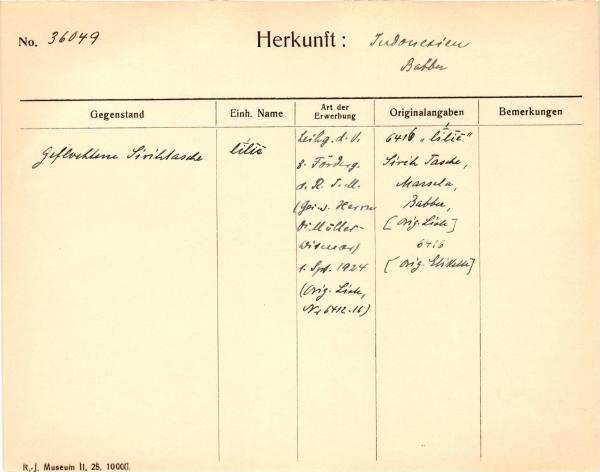 No. 36049
Herkunft: Indonesien
Babber
Gegenstand
Einh. Name
Art der Erwerbung
Originalangaben
Bemerkungen
Geflochtene Sirihtasche
litië
Leihg. d. V.
z. Förderg.
d. R. J. M.
(Ges. v. Herrn
Dr. Müller-
Wismar)
1. Spt. 1924
(Orig. Liste,
Nr 6412-16)
6416 "litië"
Sirih Tasche,
Marsela,
Babber,
[Orig. Liste]
6416
[Orig. Etikette]
R.-J. Museum II, 25, 10000.